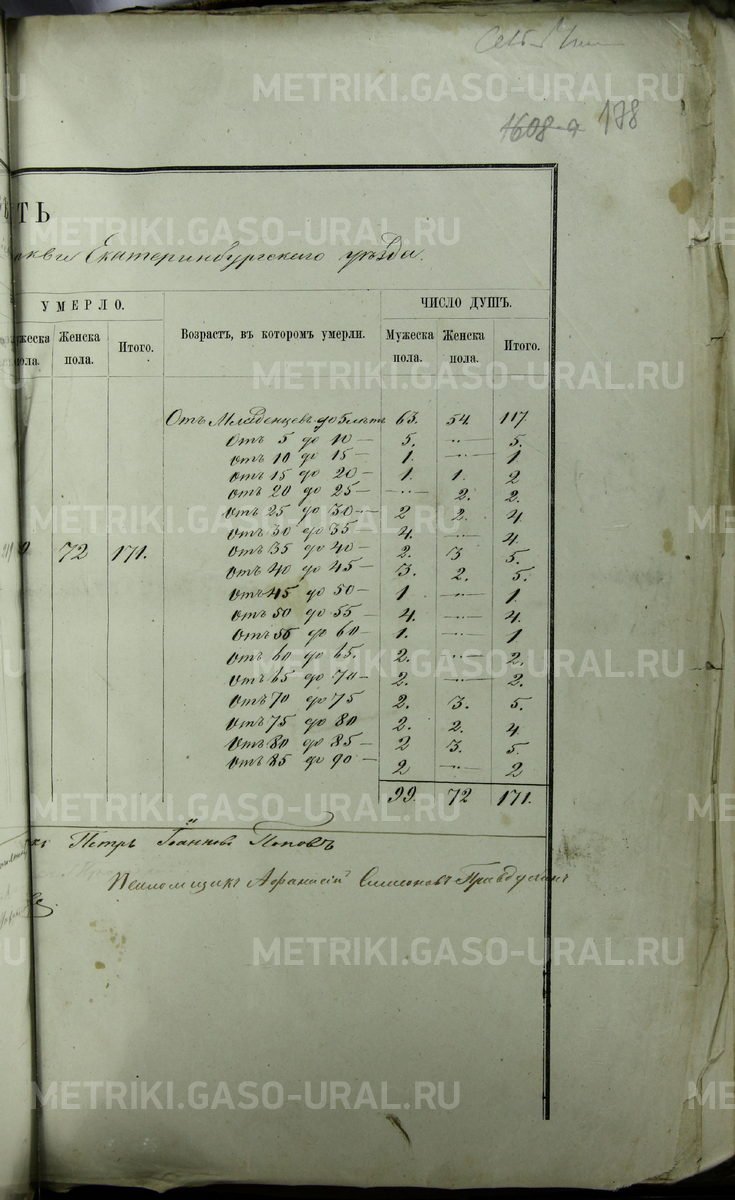 1608-а 178
ТЬ
Екатеринбургскаго уѣзда.
УМЕРЛО.
ЧИСЛО ДУШЪ.
Женска пола.
Итого.
Возрастъ, въ которомъ умерли.
Мужеска пола.
Женска пола.
Итого.
Отъ Младенцевъ до 5 лѣтъ 63. 54 117
Отъ 5 до 10 — 5. — 5.
Отъ 10 до 15 — 1. — 1
Отъ 15 до 20 — 1. 1. 2
Отъ 20 до 25 — — 2. 2.
Отъ 25 до 30 — 2 2. 4
Отъ 30 до 35 4. — 4.
72 171. Отъ 35 до 40 — 2. 3 5.
Отъ 40 до 45 — 3. 2. 5.
Отъ 45 до 50 — 1 — 1.
Отъ 50 до 55 — 4. — 4.
Отъ 55 до 60 — 1. — 1
Отъ 60 до 65. 2. — 2.
Отъ 65 до 70 — 2. — 2.
Отъ 70 до 75 2. 3. 5.
Отъ 75 до 80 2. 2. 4
Отъ 80 до 85 — 2 3. 5.
Отъ 85 до 90 — 2 — 2
99. 72 171.
Петръ Іоанновъ Поповъ
Псаломщикъ Афанасій Симеоновъ
METRIKI.GASO-URAL.RU